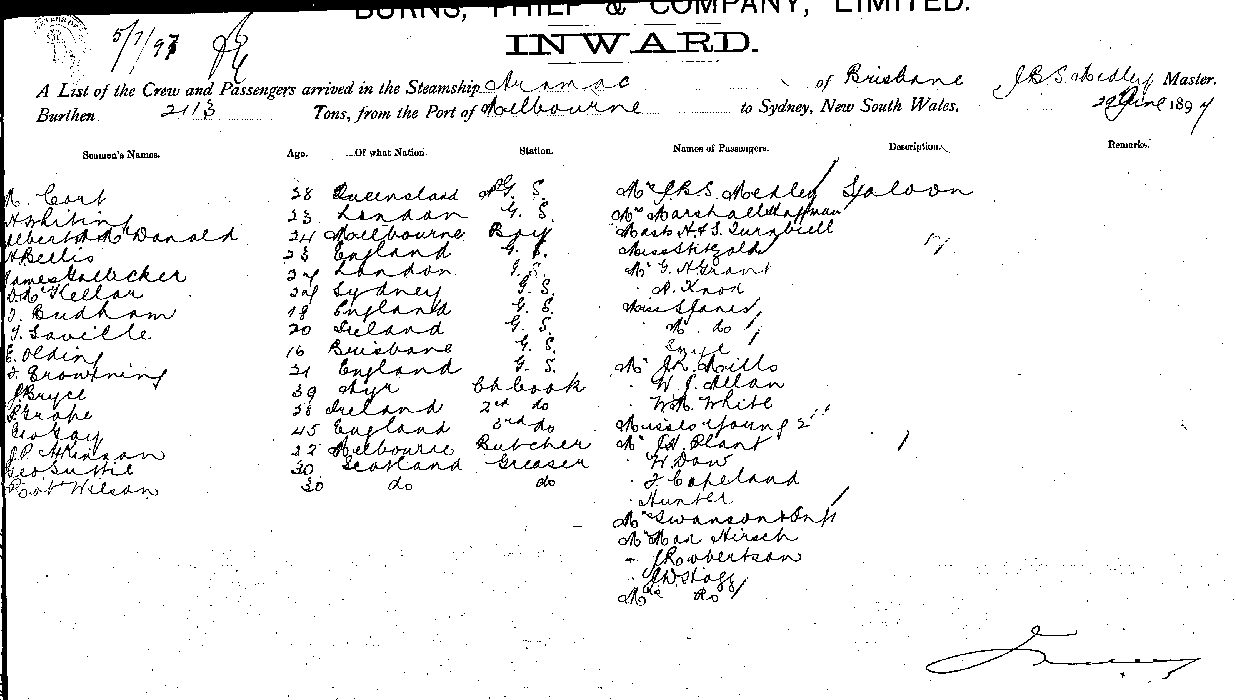 BURNS, PHILP & COMPANY, LIMITED.
5/7/97
INWARD.
A List of the Crew and Passengers arrived in the Steamship Aramac of Brisbane J.B.S. Medley Master.
Burthen 2113 Tons, from the Port of Melbourne to Sydney, New South Wales. 29 June 1897
Seamen's Names. Age. Of what Nation. Station. Names of Passengers. Description. Remarks.
Cort 28 Queensland G. S. Mrs J.B.S. Medley Saloon
A Whiting 23 London G. S. Mrs Marshall Hoffman
Albert McDonald 24 Melbourne Boy Mast H & S. Turnbull
A Bellis 23 England G. S. Miss
James 24 London G. S. Mr G. H Grant
D. McKellar 24 Sydney G. S. A. Knox
J. Budham 18 England G. S. Miss
T. Saville 20 Ireland G. S. do
E. Olding 16 Brisbane G. S.
F. Browning 21 England G. S. Mr J.R. Mills
J Bryce 39 Ayr Ch Cook W. J. Allan
38 Ireland 2nd do W.A. White
Geo Gay 45 England 3rd do Misses Young 2
J.P. Atkinson 22 Melbourne Butcher Mr J.H. Plant
Geo Suttie 30 Scotland Greaser W. Dow
Robt Wilson 30 do do J. Copeland
Hunter
Mrs Swanson & Inft
Mr Max Hirsch
J Robertson
J.W. Stagg
Mrs Do